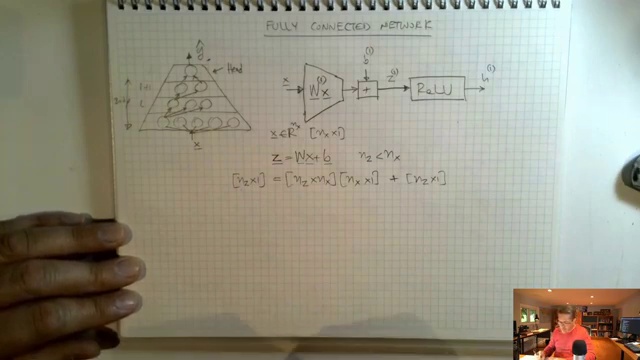 FULLY CONNECTED NETWORK
ŷ
Head
l+1
l
x
x
W⁽¹⁾x
b⁽¹⁾
+
z⁽¹⁾
ReLU
h⁽¹⁾
x ∈ ℝⁿˣ [nₓ×1]
z = Wx + b n_z < nₓ
[n_z×1] = [n_z×nₓ][nₓ×1] + [n_z×1]